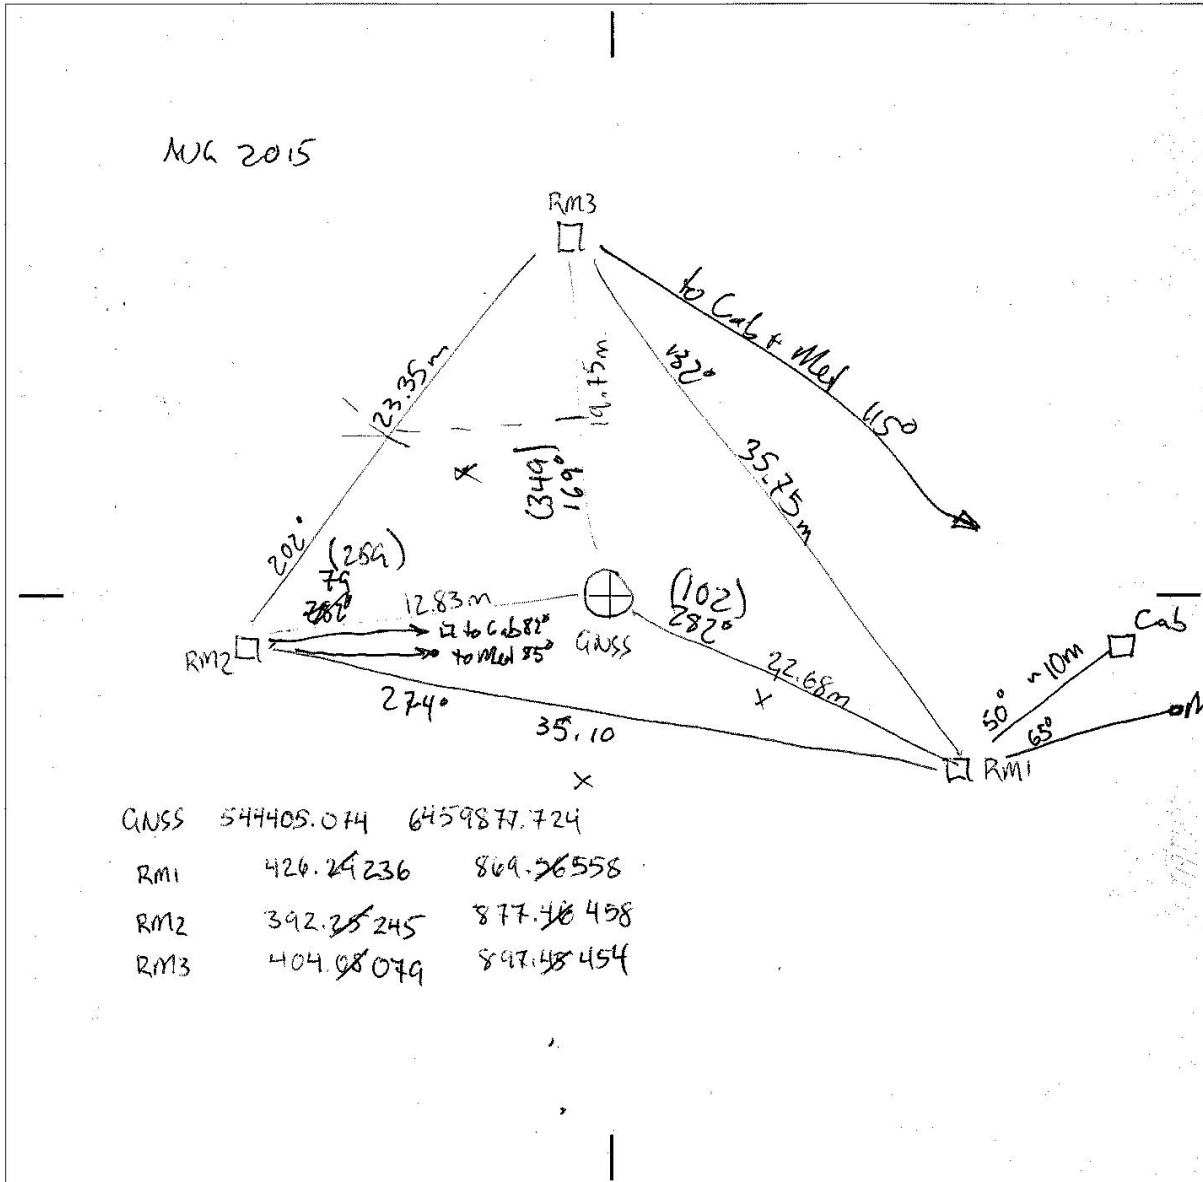 AUG 2015
RM3
to Cab + Met
115°
132°
35.75m
23.35m
19.75m
(349)
169°
202°
(259)
79
282°
12.83m
to Cab 82°
to Met 85°
RM2
GNSS
(102)
282°
22.68m
274°
35.10
Cab
~10m
50°
65°
M
RM1
GNSS 544405.074 6459877.724
RM1 426.29 236 869.56 558
RM2 392.25 245 877.46 458
RM3 404.08 079 897.45 454